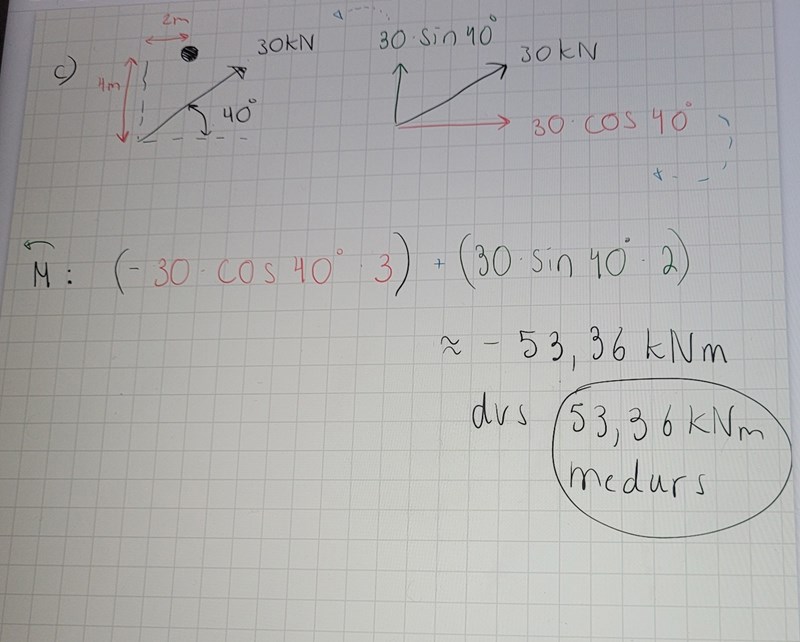 c)
2m
4m
30kN
40°
30·sin 40°
30 kN
30·cos 40°
M: (-30·cos 40°·3) + (30·sin 40°·2)
≈ - 53,36 kNm
dvs 53,36 kNm
medurs